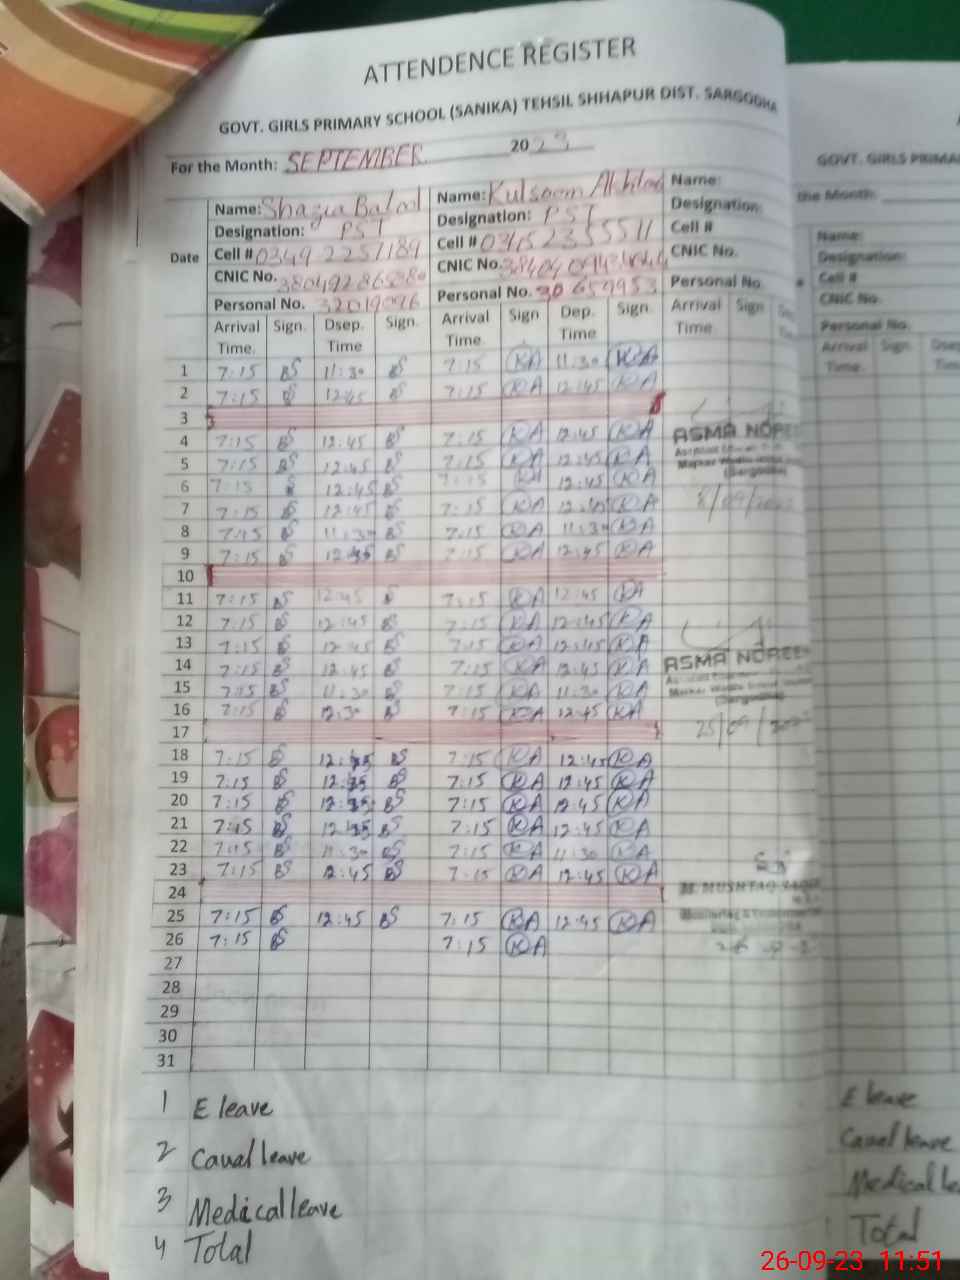 ATTENDENCE REGISTER
GOVT. GIRLS PRIMARY SCHOOL (SANIKA) TEHSIL SHHAPUR DIST. SARGODHA
For the Month: SEPTEMBER 2023
Name: Shazia Batool Name: Kulsoom Akhtar Name:
Designation: PST Designation: PST Designation:
Date Cell # 03492257189 Cell # 03152355511 Cell #
CNIC No. CNIC No. CNIC No.
Personal No. 32019096 Personal No. 30659953 Personal No.
Arrival Time. Sign. Dsep. Time Sign. Arrival Time. Sign Dep. Time Sign. Arrival Time. Sign
1 7:15 BS 11:30 BS 7:15 KA 11:30 KA
2 7:15 BS 12:45 BS 7:15 KA 12:45 KA
3
4 7:15 BS 12:45 BS 7:15 KA 12:45 KA ASMA NOREEN
5 7:15 BS 12:45 BS 7:15 KA 12:45 KA
6 7:15 12:45 BS 7:15 KA 12:45 KA
7 7:15 BS 12:45 BS 7:15 KA 12:45 KA
8 7:15 BS 11:30 BS 7:15 KA 11:30 KA
9 7:15 BS 12:45 BS 7:15 KA 12:45 KA
10
11 7:15 BS 12:45 7:15 KA 12:45 KA
12 7:15 BS 12:45 BS 7:15 KA 12:45 KA
13 7:15 BS 12:45 BS 7:15 KA 12:45 KA
14 7:15 BS 12:45 BS 7:15 KA 12:45 KA ASMA NOREEN
15 7:15 BS 11:30 BS 7:15 KA 11:30 KA
16 7:15 BS 12:30 BS 7:15 KA 12:45 KA
17
18 7:15 BS 12:45 BS 7:15 KA 12:45 KA
19 7:15 BS 12:45 BS 7:15 KA 12:45 KA
20 7:15 BS 12:45 BS 7:15 KA 12:45 KA
21 7:15 BS 12:45 BS 7:15 KA 12:45 KA
22 7:15 BS 11:30 BS 7:15 KA 11:30 KA
23 7:15 BS 12:45 BS 7:15 KA 12:45 KA
24 M. MUSHTAQ
25 7:15 BS 12:45 BS 7:15 KA 12:45 KA
26 7:15 BS 7:15 KA
27
28
29
30
31
1 E leave
2 Caual leave
3 Medical leave
4 Total
GOVT. GIRLS
the Month:
Name:
Designation:
Cell #
CNIC No.
Personal No.
Arrival Time. Sign.
E leave
Caual leave
Medical
Total
26-09-23 11:51